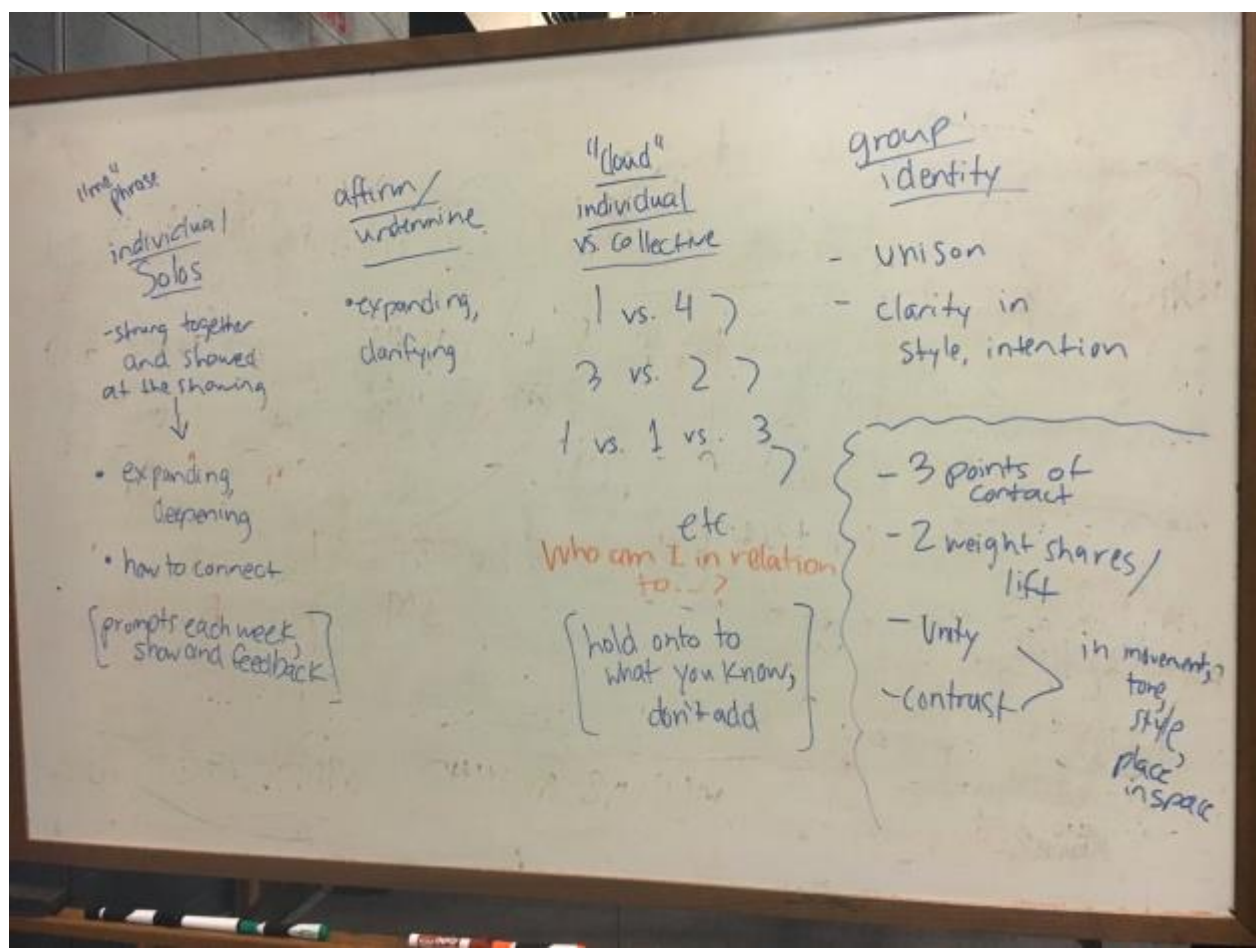 "me"
phrase
individual
Solos
-strung together
and showed
at the showing
• expanding,
deepening
• how to connect
[prompts each week,
show and feedback]
affirm/
undermine
•expanding,
clarifying
"Cloud"
individual
vs. Collective
1 vs. 4
3 vs. 2
1 vs. 1 vs. 3
etc.
Who am I in relation
to...?
[hold onto to
what you know,
don't add]
group
identity
- unison
- clarity in
style, intention
- 3 points of
contact
- 2 weight shares/
lift
- Unity
- contrast
in movement,
tone,
style,
place
in space